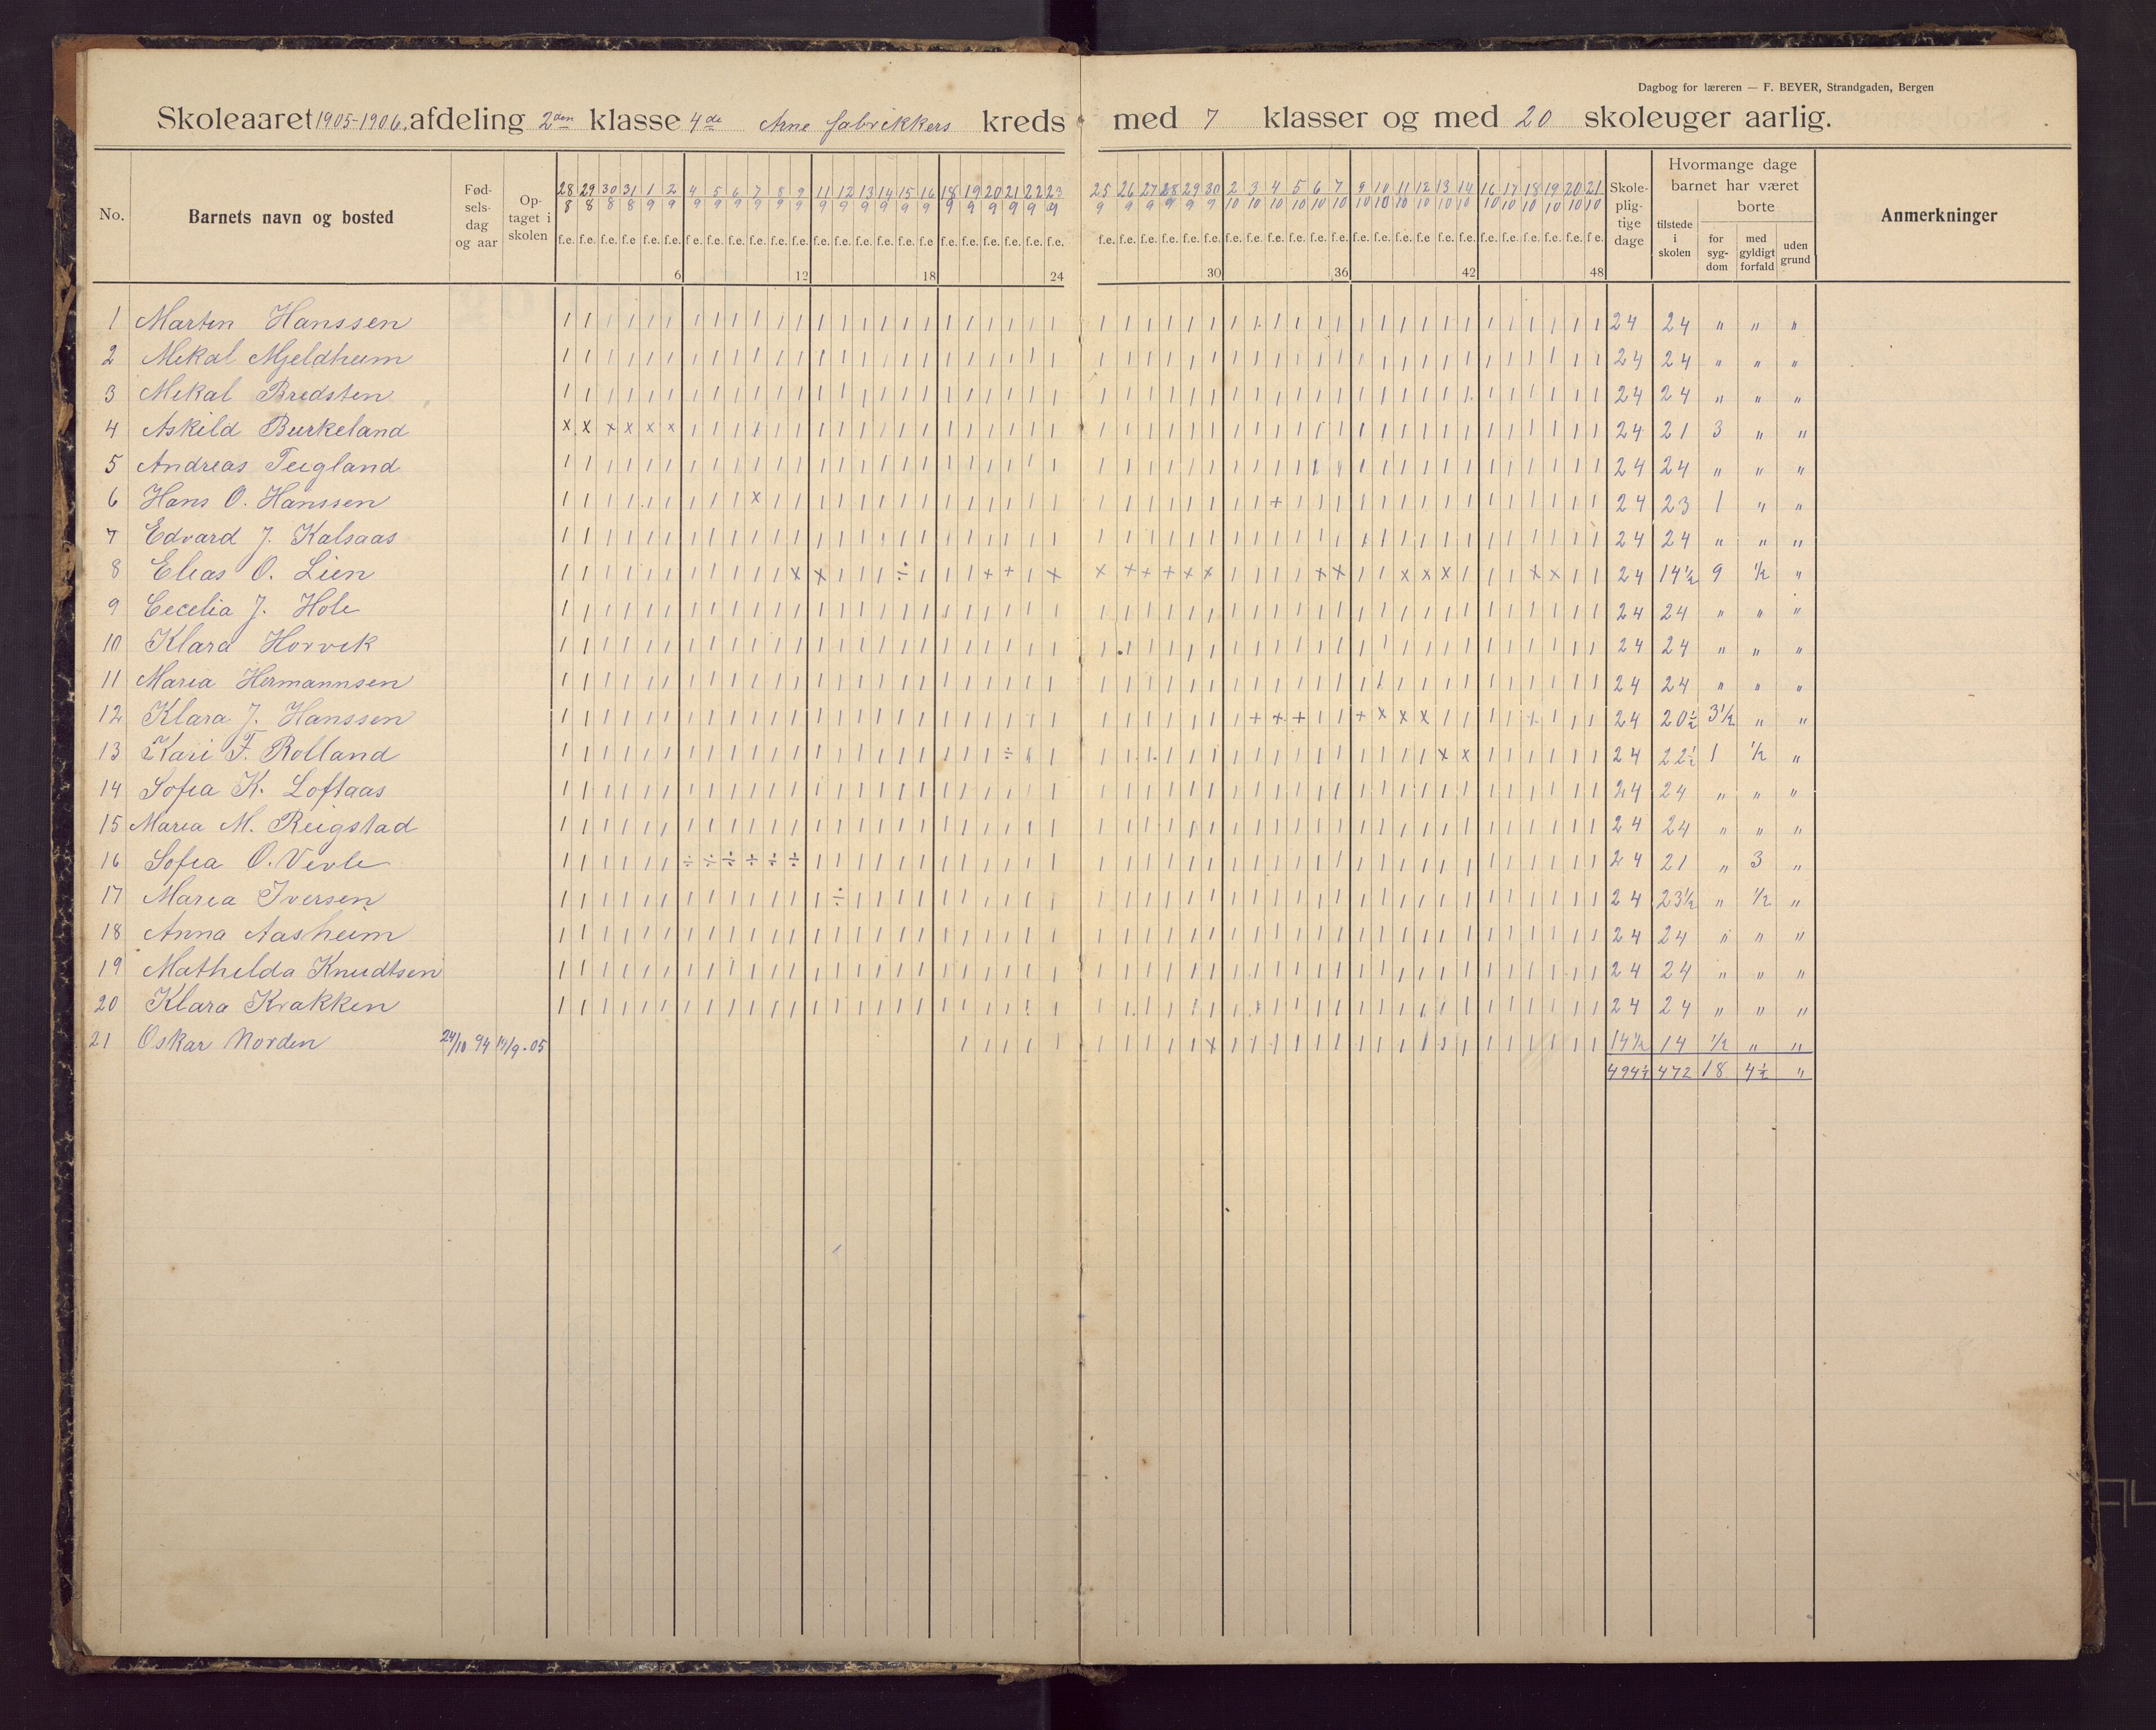 Dagbog for læreren — F. BEYER, Strandgaden, Bergen
Skoleaaret 1905-1906. afdeling 2den klasse 4de Arne fabrikkers kreds med 7 klasser og med 20 skoleuger aarlig.
No. Barnets navn og bosted Fødselsdag og aar Optaget i skolen Skolepligtige dage Hvormange dage barnet har været tilstede i skolen borte for sygdom med gyldigt forfald uden grund Anmerkninger
28/8 29/8 30/8 31/8 1/9 2/9 4/9 5/9 6/9 7/9 8/9 9/9 11/9 12/9 13/9 14/9 15/9 16/9 18/9 19/9 20/9 21/9 22/9 23/9 25/9 26/9 27/9 28/9 29/9 30/9 2/10 3/10 4/10 5/10 6/10 7/10 9/10 10/10 11/10 12/10 13/10 14/10 16/10 17/10 18/10 19/10 20/10 21/10
6 12 18 24 30 36 42 48
1 Martin Hanssen 24 24 " " "
2 Mikal Mjeldheim 24 24 " " "
3 Mikal Bredsten 24 24 " " "
4 Askild Burkeland x x x x x x 24 21 3 " "
5 Andreas Teigland 24 24 " " "
6 Hans O. Hanssen x + 24 23 1 " "
7 Edvard J. Kalsaas 24 24 " " "
8 Elias O. Lien x x ÷ + + x x + + + x x x x x x x x x 24 14½ 9 ½ "
9 Cecelia J. Hole 24 24 " " "
10 Klara Horvik 24 24 " " "
11 Maria Hermannsen 24 24 " " "
12 Klara J. Hanssen + + + + x x x 24 20½ 3½ " "
13 Kari F. Rolland ÷ x x 24 22½ 1 ½ "
14 Sofia K. Loftaas 24 24 " " "
15 Maria M. Reigstad 24 24 " " "
16 Sofia O. Vevle ÷ ÷ ÷ ÷ ÷ ÷ 24 21 " 3 "
17 Maria Iversen ÷ 24 23½ " ½ "
18 Anna Aasheim 24 24 " " "
19 Mathilda Knudtsen 24 24 " " "
20 Klara Krakken 24 24 " " "
21 Oskar Norden 24/10 94 19/9-05 x 14½ 14 ½ " "
494½ 472 18 4½ "